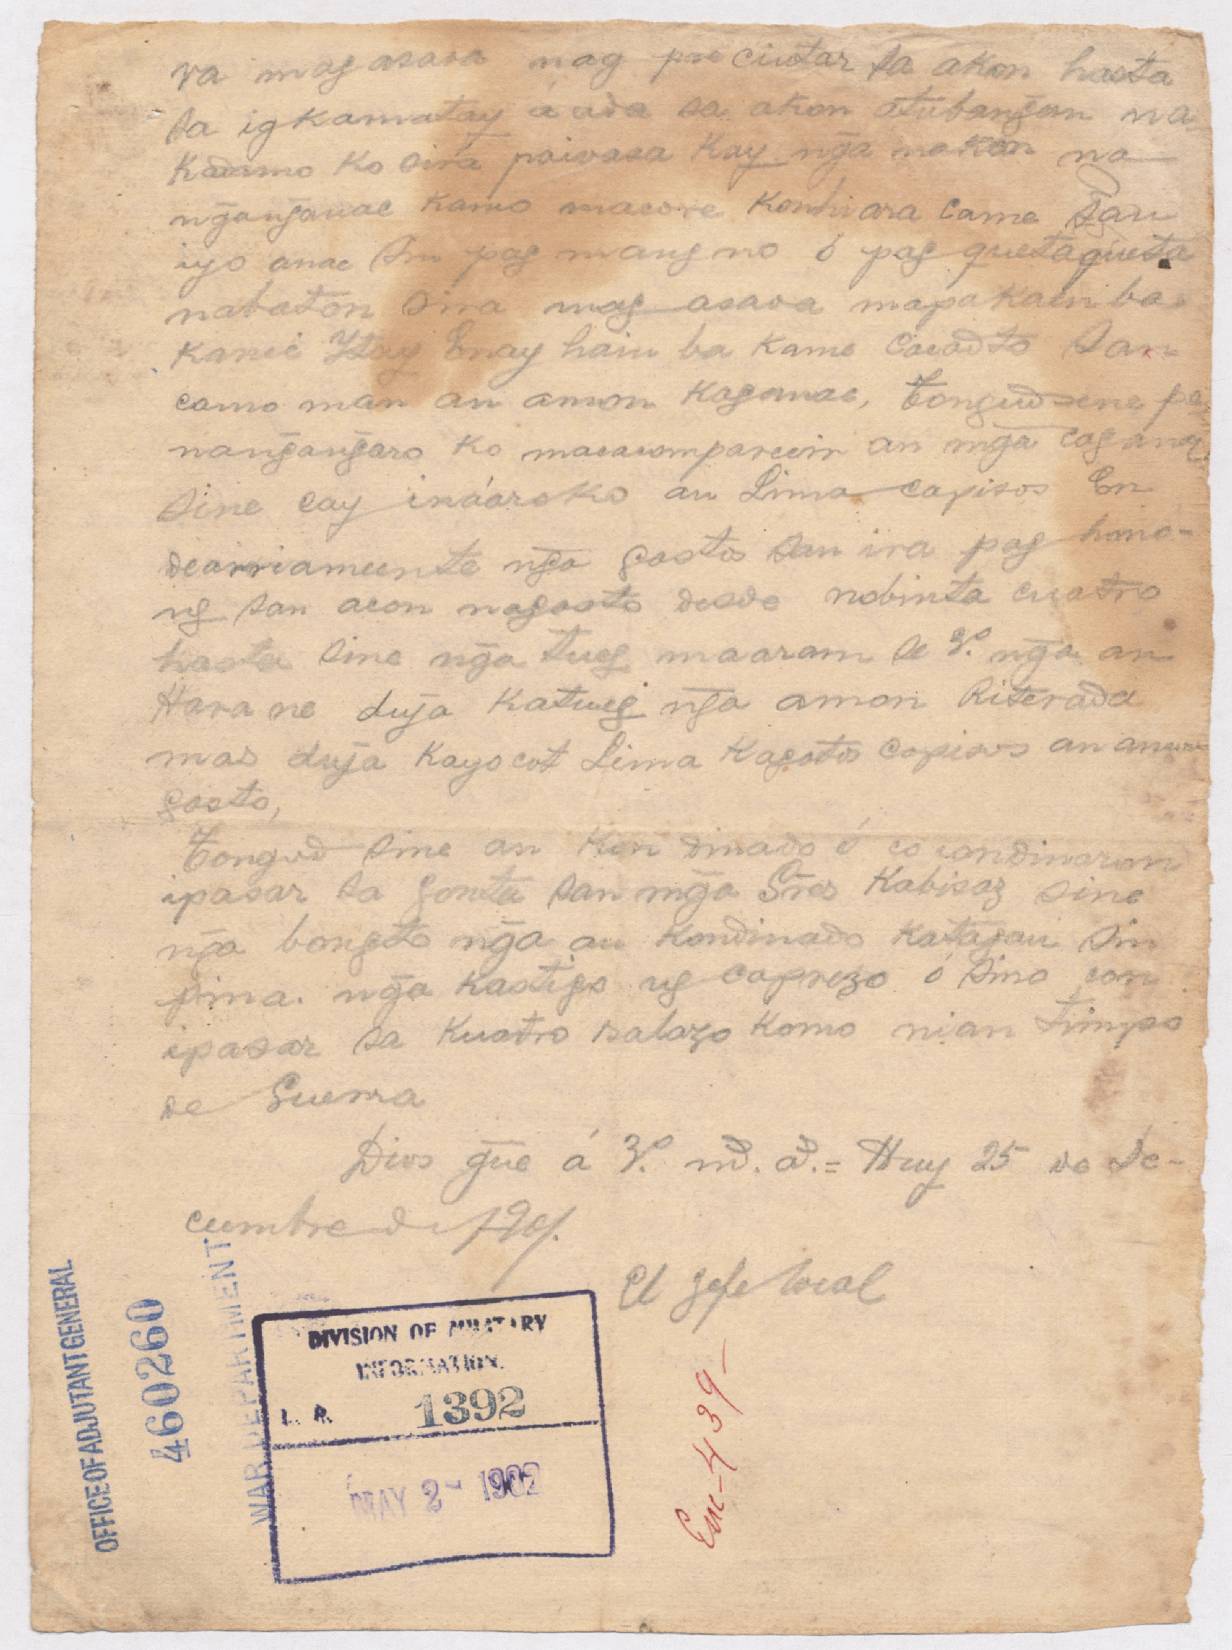 va mag asava nag pre ciutar sa akon hasta
sa igkamatay á uda sa akon atubang̃an na
Kadamo Ko sira paivasa Kay ng̃a makon na
ng̃ang̃anac Kamo macore Konhiara came san
iyo anac sin pag mangno ó pag quetaqueta
nabaton sira mag asava mapakain ba
Kamé Ytay Enay hain ba Kame Caiadto San
camo man an amon Kaganac, Tongud sine pa
nang̃ang̃aro Ko macacomparecir an mg̃a caganac
sine cay ináaroko an Lima capisos En
dearriamente ng̃a gastos san ira pag hono-
ng san acon nagasto desde nobinta cuatro
hasta sine ng̃a tueg maaram se V. ng̃a an
Hara ne duja Katueg ng̃a amon Riterada
mas duja Kayocot Lima Kagatos Capisos an amon
gasto,
Tongud sine an Kondinado ó co condinaron
ipasar sa gonta san mg̃a Sres Kabisaz sine
ng̃a bongto ng̃a an Kondinado Katag̃an sin
pina. ng̃a Kastigo ug caprezo ó sino con
ipasar sa Kuatro balazo Komo nian timpo
de Guerra
Dios gue á V. m̃d. a̅d̅.= Huy 25 de De-
ciembre de 1901.
El Jefe local
OFFICE OF ADJUTANT GENERAL
460260
WAR DEPARTMENT
DIVISION OF MILITARY
INFORMATION.
L. R. 1392
MAY 2- 1902
Enc-439-